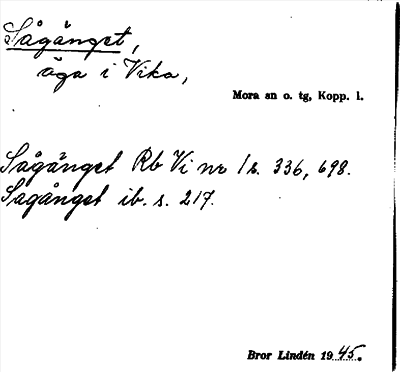 Sågänget,
äga i Vika,
Mora sn o. tg, Kopp. l.
Sågänget Rb Vi nr 1 s. 336, 698.
Sagånget ib. s. 217.
Bror Lindén 1945.